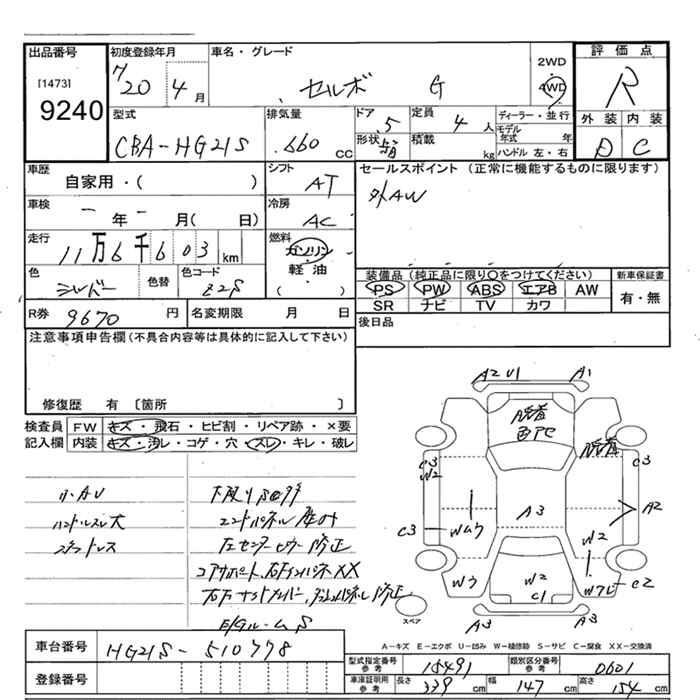 出品番号
[1473]
9240
初度登録年月
H20 4 月
車名・グレード
セルボ G
2WD
4WD
評価点
R
外装 内装
D C
型式
CBA-HG21S
排気量
.660 cc
ドア
5
形状
箱
定員
4 人
積載
kg
ディーラー・並行
モデル年式 年
ハンドル 左・右
車歴
自家用・( )
シフト
AT
セールスポイント (正常に機能するものに限ります)
外AW
車検
年 月( 日)
冷房
AC
走行
11万6千603 km
燃料
ガソリン
軽油
( )
色
シルバー
色替
色コード
Z2S
装備品 (純正品に限り○をつけてください)
PS PW ABS エアB AW
SR ナビ TV カワ
新車保証書
有・無
R券 9670 円
名変期限 月 日
後日品
注意事項申告欄(不具合内容等は具体的に記入して下さい)
修復歴 有 〔箇所 〕
検査員記入欄
FW キズ・飛石・ヒビ割・リペア跡・×要
内装 キズ・汚レ・コゲ・穴・スレ・キレ・破レ
小AU
ハンドルスレ大
スタッドレス
エンドパネル
左センターピラー修正
コアサポート、右インパネXX
A2 U1
A1
脱着
色アセ
脱着
C3
W2
C3
A3
A2
C3
W2
Wウ
W2
C1
C2
A3
A3
スペア
A-キズ E-エクボ U-凹み W-補修跡 S-サビ C-腐食 XX-交換済
車台番号
HG21S-510778
登録番号
型式指定番号 参考
15491
類別区分番号 参考
0601
車庫証明用 参考
長さ 339 cm
幅 147 cm
高さ 154 cm